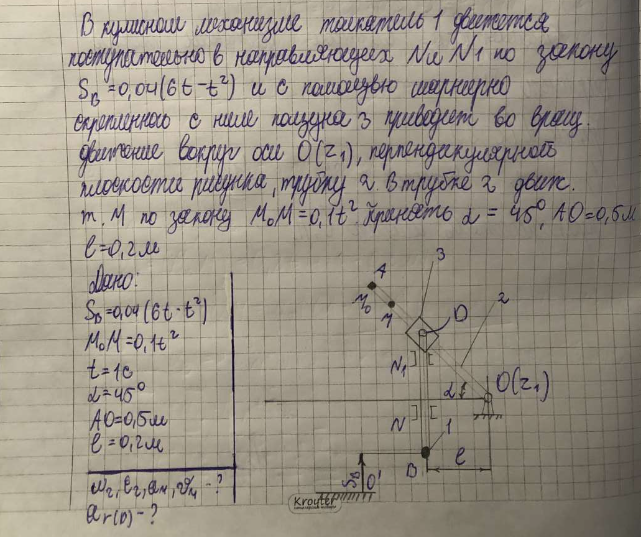 В кулисном механизме толкатель 1 движется
поступательно в направляющих N и N1 по закону
SB=0,04(6t-t²) и с помощью шарнирно
скрепленного с ним ползуна 3 приводит во вращ.
движение вокруг оси O(z1), перпендикулярной
плоскости рисунка, трубку 2. В трубке 2 движ.
т. М по закону M0M=0,1t². Принять α = 45°, AO=0,5м
l=0,2м
Дано:
SB=0,04(6t-t²)
M0M=0,1t²
t=1c
α=45°
AO=0,5м
l=0,2м
ω2, ε2, aм, vм -?
ar(D) -?
A
M0
M
3
D
2
N1
α
O(z1)
N
1
B
l
SB
O'
Kroyter